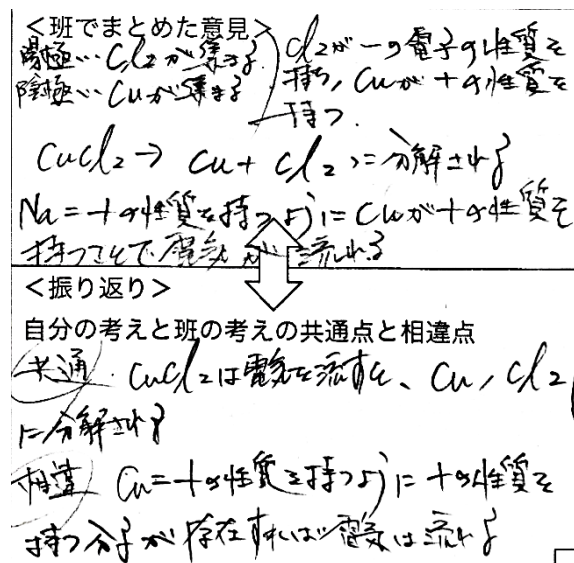 <班でまとめた意見>
陽極…Cl2が集まる
陰極…Cuが集まる
Cl2が－の電子の性質を
持ち，Cuが＋の性質を
持つ．
CuCl2→ Cu + Cl2 に分解される
Na=＋の性質を持つようにCuが＋の性質を
持つことで電気が流れる
<振り返り>
自分の考えと班の考えの共通点と相違点
共通．CuCl2は電気を流すと、Cu，Cl2
に分解される
相違 Cu=＋の性質を持つように＋の性質を
持つ分子が存在すれば電気は流れる